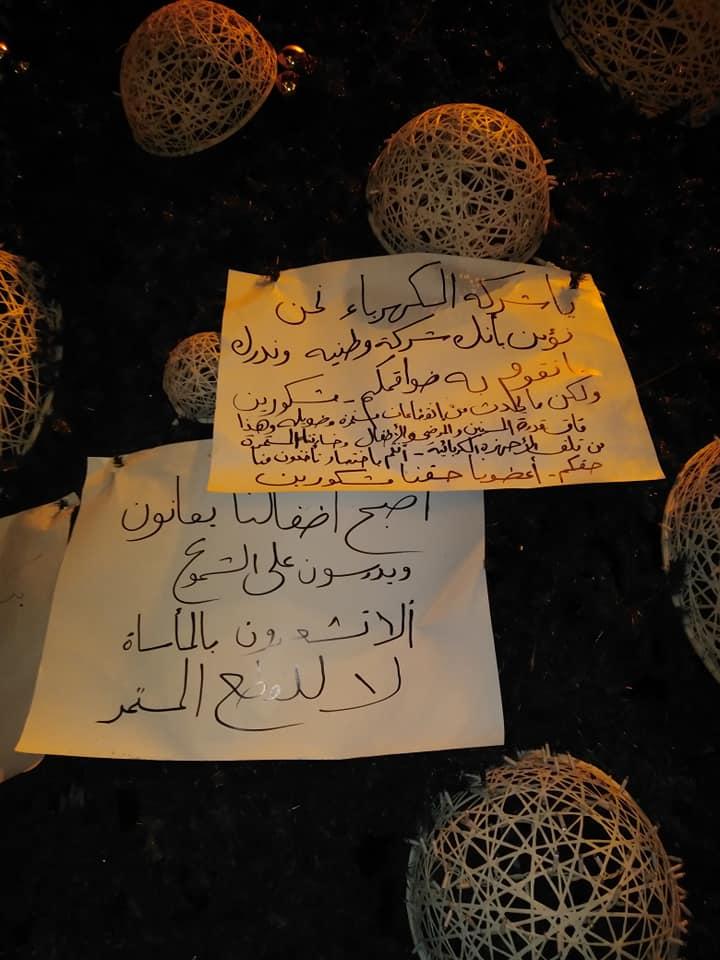 يا شركة الكهرباء نحن
نؤمن بأنك شركة وطنيه وندرك
ما تقوم به طواقمكم - مشكورين
ولكن ما يحدث من انقطاعات مستمرة وطويله وهذا
فاق قدرة المسنين والمرضى والأطفال وخسائرنا المستمرة
من تلف الأجهزة الكهربائية - أنتم باختصار تأخذون منا
حقكم - أعطونا حقنا مشكورين
أصبح أطفالنا يعانون
ويدرسون على الشموع
ألا تشعرون بالمأساة
لا للقطع المستمر